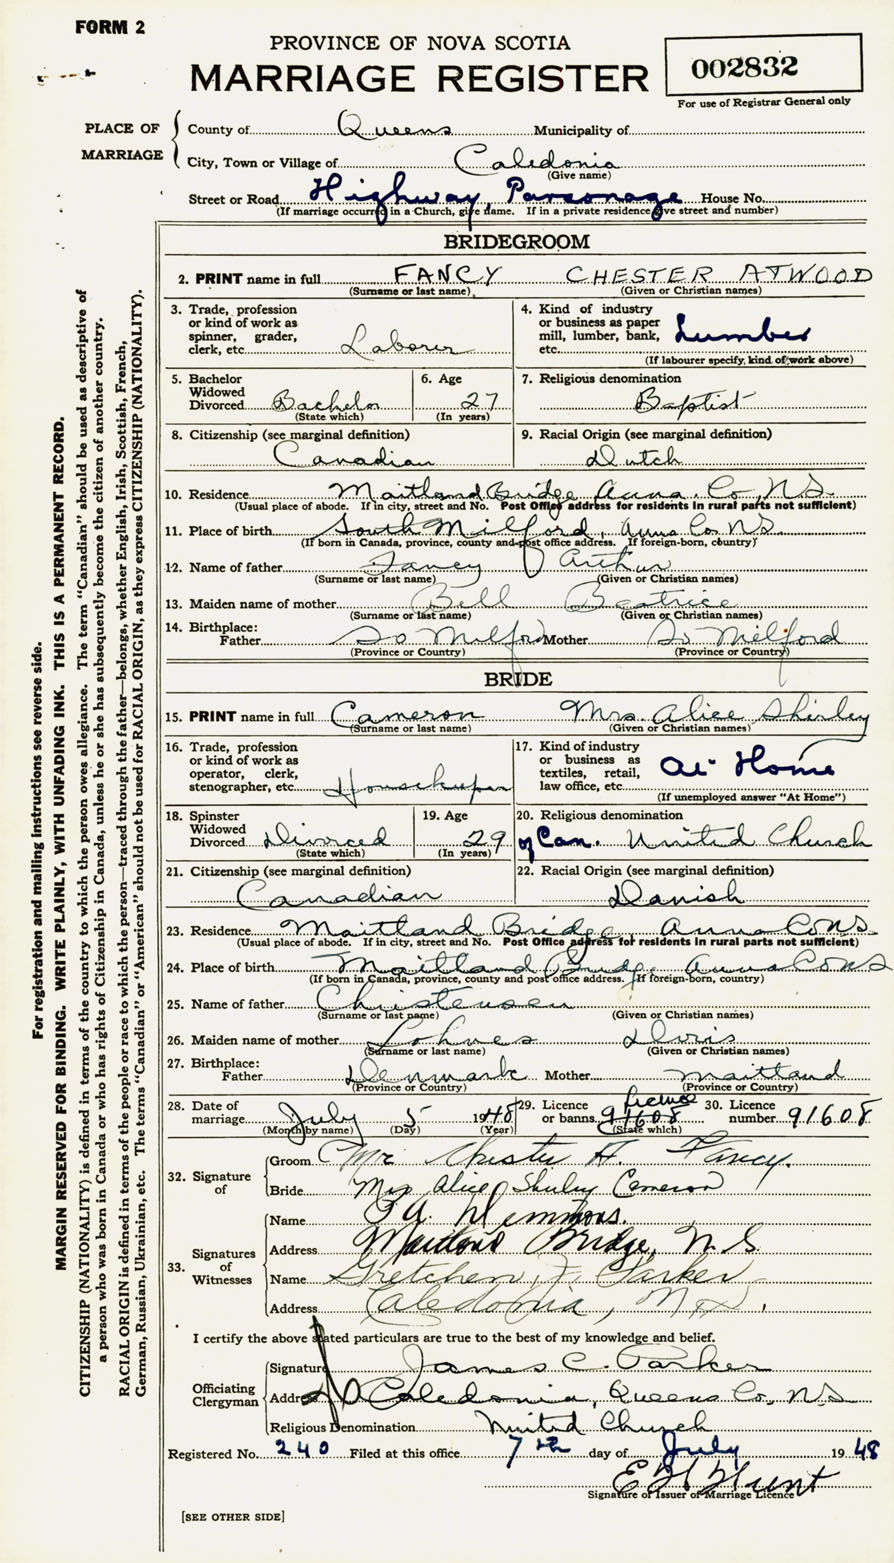 FORM 2
PROVINCE OF NOVA SCOTIA
MARRIAGE REGISTER
002832
For use of Registrar General only
PLACE OF MARRIAGE
County of Queens Municipality of
City, Town or Village of Caledonia
(Give name)
Street or Road Highway, Parsonage House No.
(If marriage occurred in a Church, give name. If in a private residence give street and number)
BRIDEGROOM
2. PRINT name in full FANCY CHESTER ATWOOD
(Surname or last name) (Given or Christian names)
3. Trade, profession or kind of work as spinner, grader, clerk, etc. Laborer
4. Kind of industry or business as paper mill, lumber, bank, etc. Lumber
(If labourer specify kind of work above)
5. Bachelor Widowed Divorced Bachelor
(State which)
6. Age 27
(In years)
7. Religious denomination
Baptist
8. Citizenship (see marginal definition)
Canadian
9. Racial Origin (see marginal definition)
Dutch
10. Residence Maitland Bridge Anna. Co., N.S.
(Usual place of abode. If in city, street and No. Post Office address for residents in rural parts not sufficient)
11. Place of birth South Milford, Anna Co. N.S.
(If born in Canada, province, county and post office address. If foreign-born, country)
12. Name of father Fancy Arthur
(Surname or last name) (Given or Christian names)
13. Maiden name of mother Bell Beatrice
(Surname or last name) (Given or Christian names)
14. Birthplace:
Father So Milford Mother So Milford
(Province or Country) (Province or Country)
BRIDE
15. PRINT name in full Cameron Mrs. Alice Shirley
(Surname or last name) (Given or Christian names)
16. Trade, profession or kind of work as operator, clerk, stenographer, etc. Housekeeper
17. Kind of industry or business as textiles, retail, law office, etc. At Home
(If unemployed answer "At Home")
18. Spinster Widowed Divorced Divorced
(State which)
19. Age 29
(In years)
20. Religious denomination
of Can. United Church
21. Citizenship (see marginal definition)
Canadian
22. Racial Origin (see marginal definition)
Danish
23. Residence Maitland Bridge, Anna Co N.S.
(Usual place of abode. If in city, street and No. Post Office address for residents in rural parts not sufficient)
24. Place of birth Maitland Bridge, Anna Co N S
(If born in Canada, province, county and post office address. If foreign-born, country)
25. Name of father Christensen
(Surname or last name) (Given or Christian names)
26. Maiden name of mother Lohnes Doris
(Surname or last name) (Given or Christian names)
27. Birthplace:
Father Denmark Mother Maitland
(Province or Country) (Province or Country)
28. Date of marriage July 5 1948
(Month by name) (Day) (Year)
29. Licence or banns licence 91608
(State which)
30. Licence number 91608
32. Signature of
Groom Mr Chester A. Fancy.
Bride Mrs Alice Shirley Cameron
33. Signatures of Witnesses
Name
Address Maitland Bridge, N.S.
Name Gretchen J. Parker
Address Caledonia, N.S.
I certify the above stated particulars are true to the best of my knowledge and belief.
Officiating Clergyman
Signature James C. Parker
Address Caledonia, Queens Co., N.S.
Religious Denomination United Church
Registered No. 240 Filed at this office 7th day of July 1948
E H Hunt
Signature of Issuer of Marriage Licence
[SEE OTHER SIDE]
For registration and mailing instructions see reverse side.
MARGIN RESERVED FOR BINDING. WRITE PLAINLY, WITH UNFADING INK. THIS IS A PERMANENT RECORD.
CITIZENSHIP (NATIONALITY) is defined in terms of the country to which the person owes allegiance. The term "Canadian" should be used as descriptive of
a person who was born in Canada or who has rights of Citizenship in Canada, unless he or she has subsequently become the citizen of another country.
RACIAL ORIGIN is defined in terms of the people or race to which the person—traced through the father—belongs, whether English, Irish, Scottish, French,
German, Russian, Ukrainian, etc. The terms "Canadian" or "American" should not be used for RACIAL ORIGIN, as they express CITIZENSHIP (NATIONALITY).